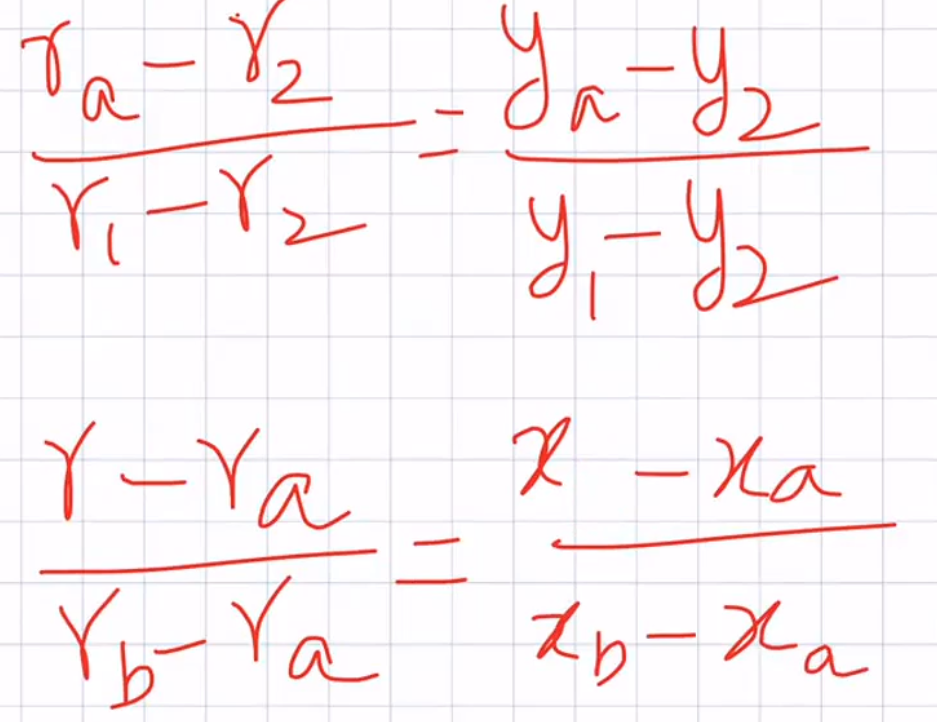 (r_a - r_2)/(r_1 - r_2) = (y_a - y_2)/(y_1 - y_2)
(r - r_a)/(r_b - r_a) = (x - x_a)/(x_b - x_a)